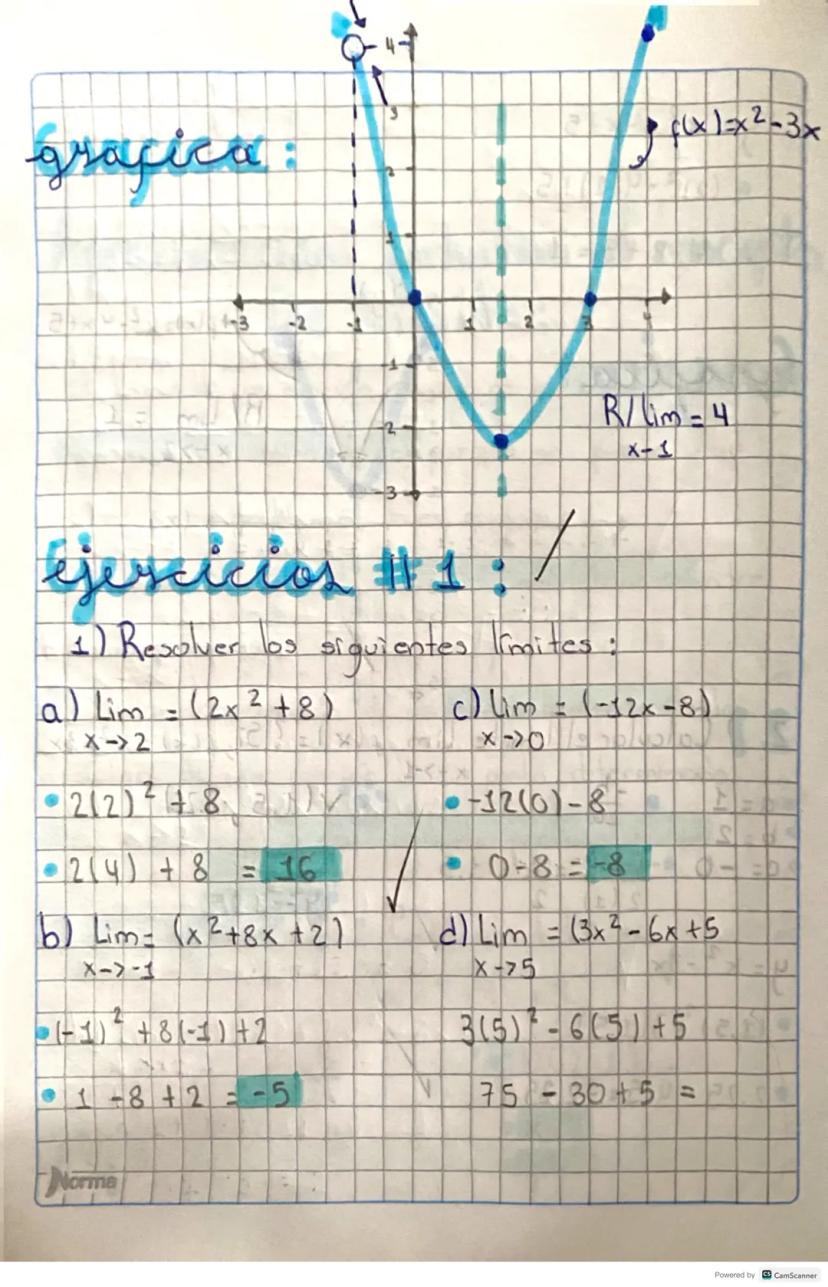 4
3
grafica :
f(x)=x²-3x
2
1
-3 -2 -1 1 2 3 4
-1
-2
R/ lim = 4
x-1
-3
Ejercicios #1 :
1) Resolver los siguientes límites :
a) Lim = (2x² + 8)
x->2
• 2(2)² + 8
• 2(4) + 8 = 16
c) Lim = (-12x-8)
x->0
• -12(0)-8
• 0-8 = -8
b) Lim= (x²+8x+2)
x->-1
• (-1)² + 8(-1)+2
• 1 -8 + 2 = -5
d) Lim = (3x² - 6x + 5
x->5
3(5)² - 6(5) + 5
75 - 30 + 5 =
Norma
Powered by CS CamScanner